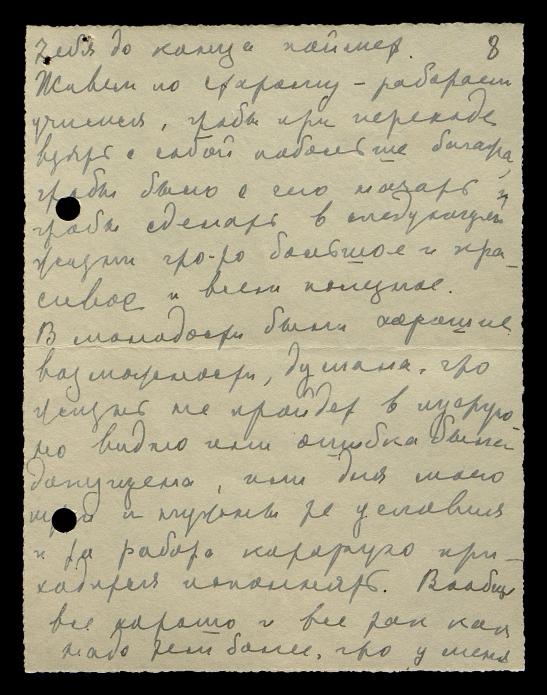 8
тебя до конца поймет.
Живем по старому - работаем
учимся, чтобы при переходе
взять с собой побольше багажа,
чтобы было с чего начать и
чтобы сделать в следующей
жизни что-то большое и кра-
сивое и всем полезное.
В молодости были хорошие
возможности, думала, что
жизнь не пройдет в пустую
но видно или ошибка была
допущена, или для моего
и нужны те условия
и та работа которую при-
ходится исполнять. Вообще
все хорошо и все так как
надо тем более, что у меня